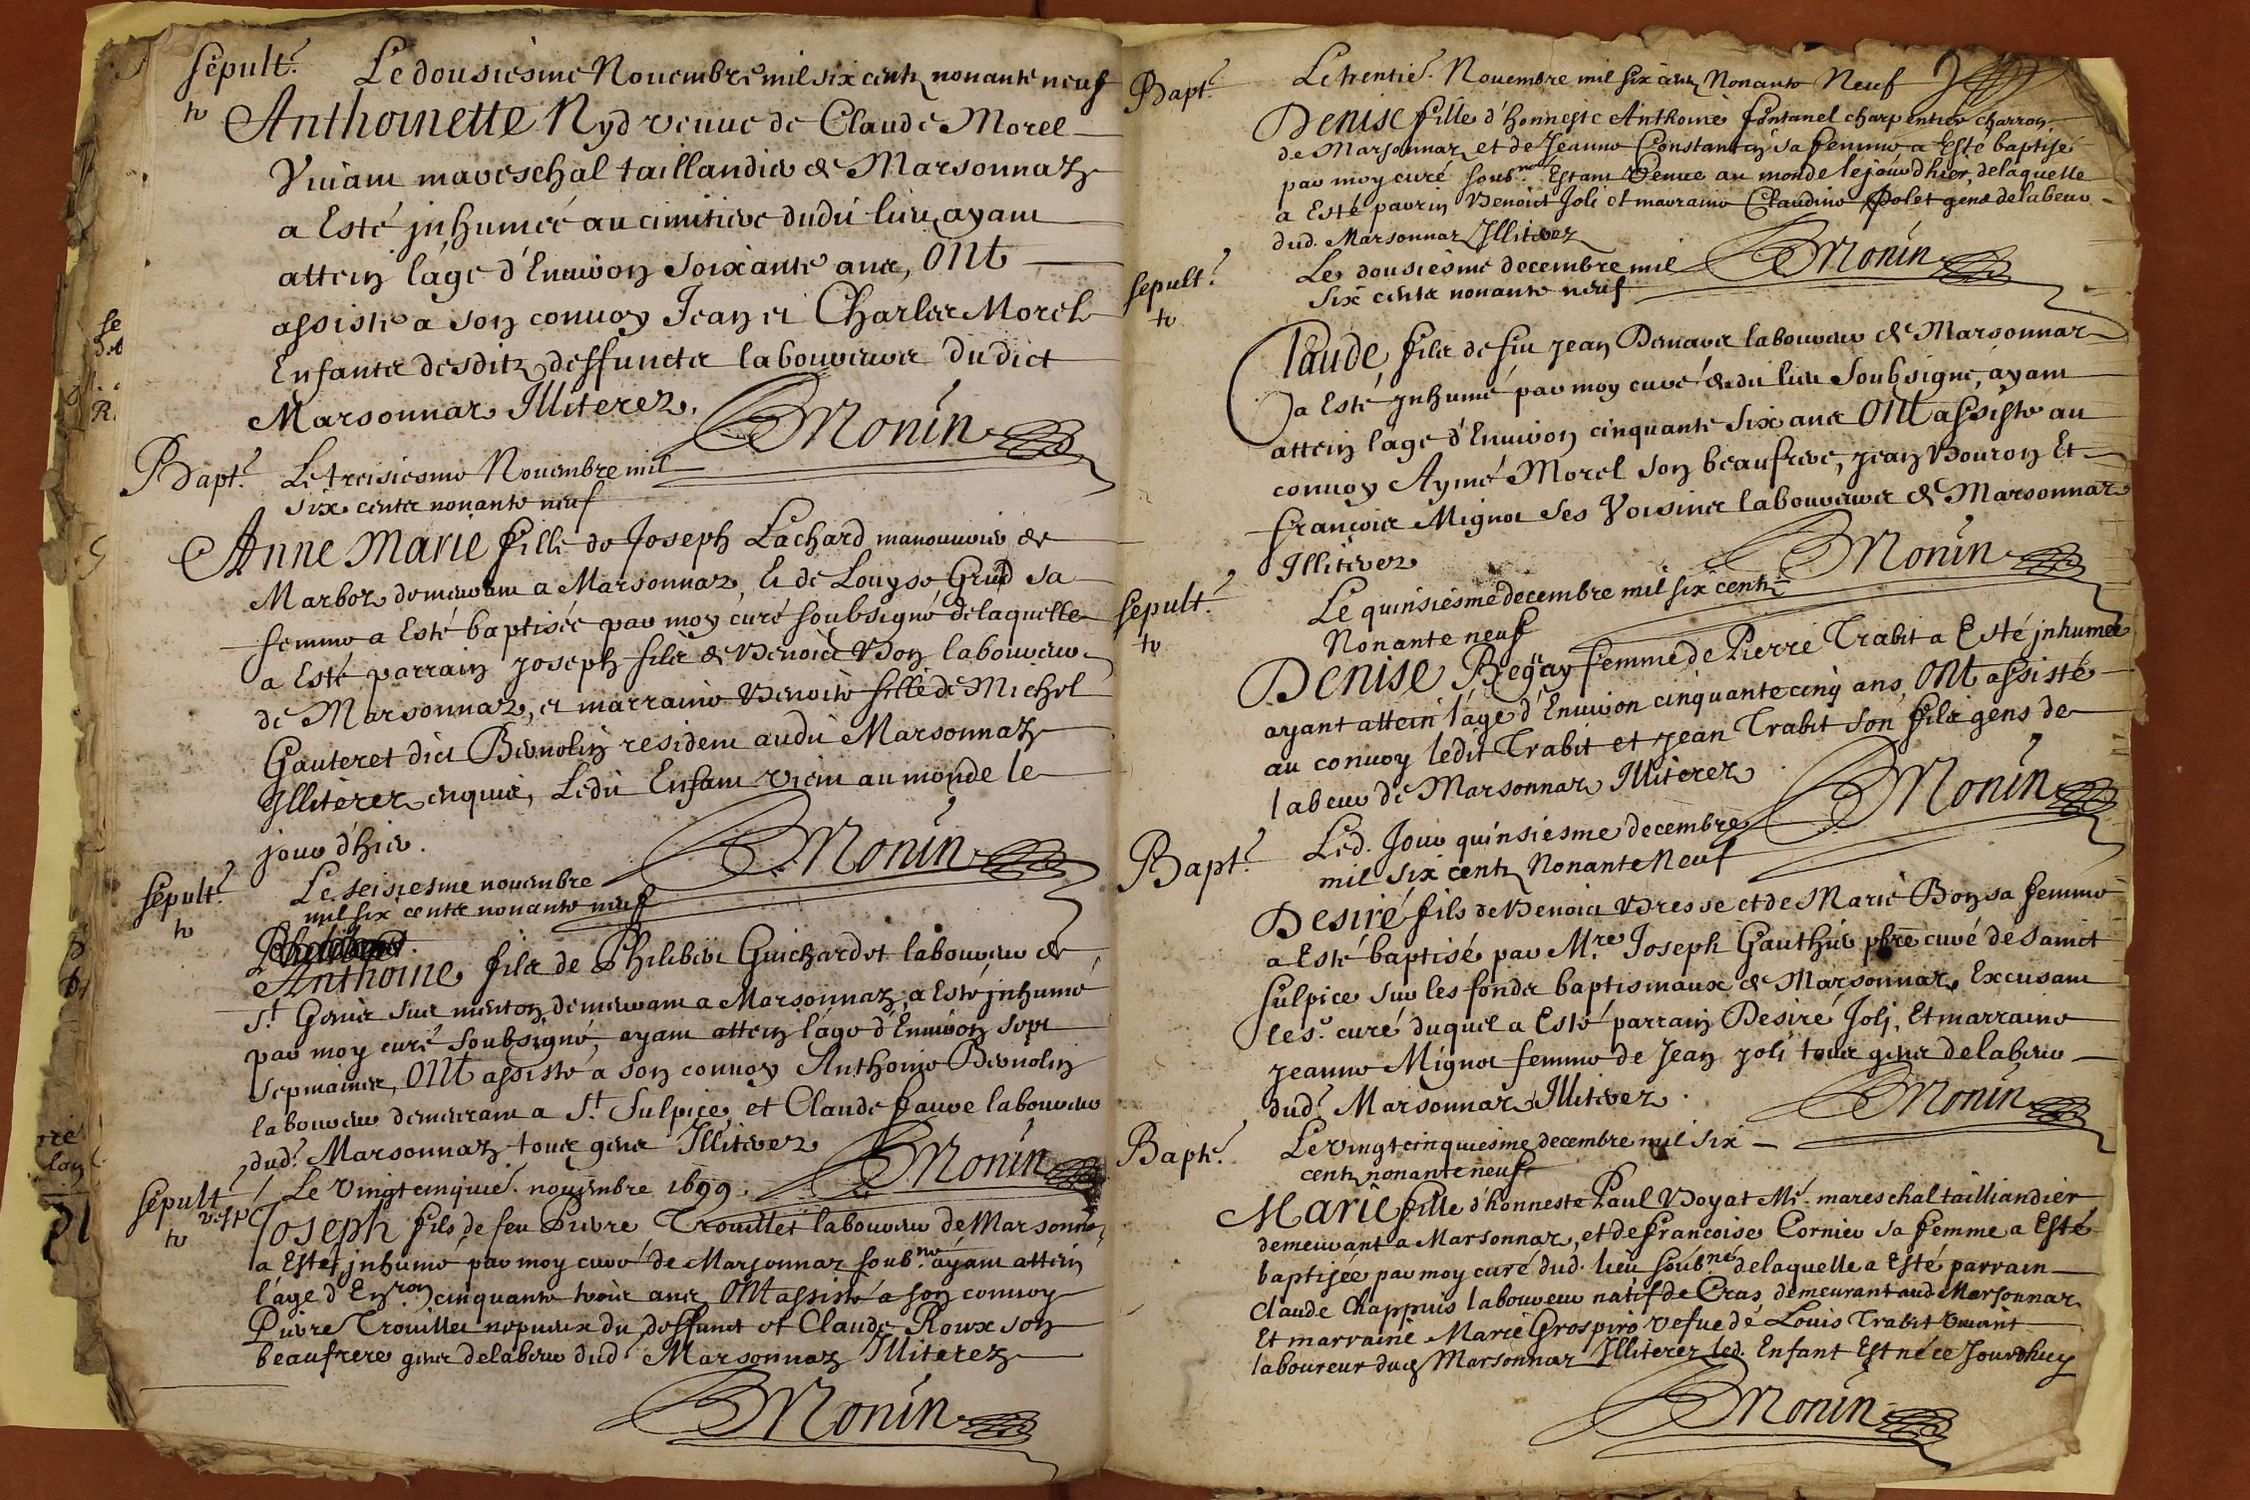 Sepult.e Le dousiesme Nouembre mil six centz nonante neuf
to
Anthoinette Nyd veuue de Claude Morel
Viuant mareschal taillandier de Marsonnaz
a Esté jnhumeé au cimitiere dudit lieu, ayant
attein l'áge d'Enuiron soixante ans, ont
assisté a son conuoy Jean et Charles Morel
Enfants desditz deffuncts laboureurs dudict
Marsonnaz Illiterez.
Monin
Bapt.e Le treisiesme Nouembre mil
six cents nonante neuf
Anne Marie fille de Joseph Lachard manouurier de
Marboz demeurant a Marsonnaz, et de Louyse Grud sa
femme a Esté baptisée par moy curé soubsigné de laquelle
a Esté parrain joseph fils de Benoict Bon laboureur
de Marsonnaz, et marraine Benoite fille de Michel
Gauteret dict Bernolin resident audit Marsonnaz
Illiterez enquis, Ledit Enfant vient au monde le
jour d'hier.
Monin
Sepult.e Le seisiesme nouembre
to mil six cents nonante neuf
Anthoine fils de Philibert Guichardot laboureur de
St. Genis sur menton demeurant a Marsonnaz, a Esté jnhumé
par moy curé soubsigné, ayant attein l'áge d'Enuiron sept
sepmaines, ont assisté a son conuoy Anthoine Bernolin
laboureur demeurant a St. Sulpice, et Claude Faure laboureur
dud.t Marsonnaz tous gens Illiterez
Monin
Sepult.e Le vingt cinquie. nouembre 1699.
to
Joseph fils de feu Pierre Trouillet laboureur de Marsonnaz
a Esté jnhumé par moy curé de Marsonnaz soub.né ayant attein
l'áge d'Enron cinquante trois ans, ont assisté a son conuoy
Pierre Trouillet nepueux du deffunct et Claude Roux son
beaufrere gens de labeur dud. Marsonnaz Illiterez
Monin
Bapt.e Le trentie. Nouembre mil six centz Nonante Neuf
Denise fille d'honneste Anthoine Fontanel charpentier charron
de Marsonnaz et de Jeanne Constantin sa femme a Esté baptisé
par moy curé soub.né Estant Venue au monde le jour d'hier, de laquelle
a Esté parrin Benoict Joli et marraine Claudine Polet gens de labeur
dud. Marsonnaz Illiterez
Monin
Sepult.e Le dousiesme decembre mil
to six cents nonante neuf
Claude fils de feu jean Denaves laboureur de Marsonnaz
a Esté jnhumé par moy curé dudit lieu Soubsigné, ayant
attein l'age d'Enuiron cinquante six ans ont assisté au
conuoy Aymé Morel son beaufrere, jean Bouron Et
François Mignot ses Voisins laboureurs de Marsonnaz
Illiterez
Monin
Sepult.e Le quinsiesme decembre mil six centz
to Nonante neuf
Denise Begay femme de Pierre Trabit a Esté jnhumeé
ayant attein l'áge d'Enuiron cinquante cinq ans, ont assisté
au conuoy ledit Trabit et jean Trabit son fils gens de
labeur de Marsonnaz Illiterez
Monin
Bapt.e Led. Jour quinsiesme decembre
mil six centz Nonante Neuf
Desiré fils de Benoict Bresse et de Marie Bon sa femme
a Esté baptisé par Mre. Joseph Gauthier pbre curé de sainct
sulpice sur les fonds baptismaux de Marsonnaz, Excusant
le s.r curé duquel a Esté parrain Desiré Joli, Et marraine
jeanne Mignot femme de jean joli tous gens de labeur
dud.t Marsonnaz Illiterez.
Monin
Bapt.e Le vingt cinquiesme decembre mil six
centz nonante neuf
Marie fille d'honneste Paul Boyat Me. mareschal tailliandier
demeurant a Marsonnaz, et de francoise Cornier sa femme a Esté
baptisée par moy curé dud. lieu soub.né de laquelle a Esté parrain
Claude Chappuis laboureur natif de Cras demeurant aud. Marsonnaz
Et marraine Marie Grospiro vefue de Louis Trabit Viuant
laboureur dud. Marsonnaz Illiterez led. Enfant Est né ce Jourdhuy
Monin